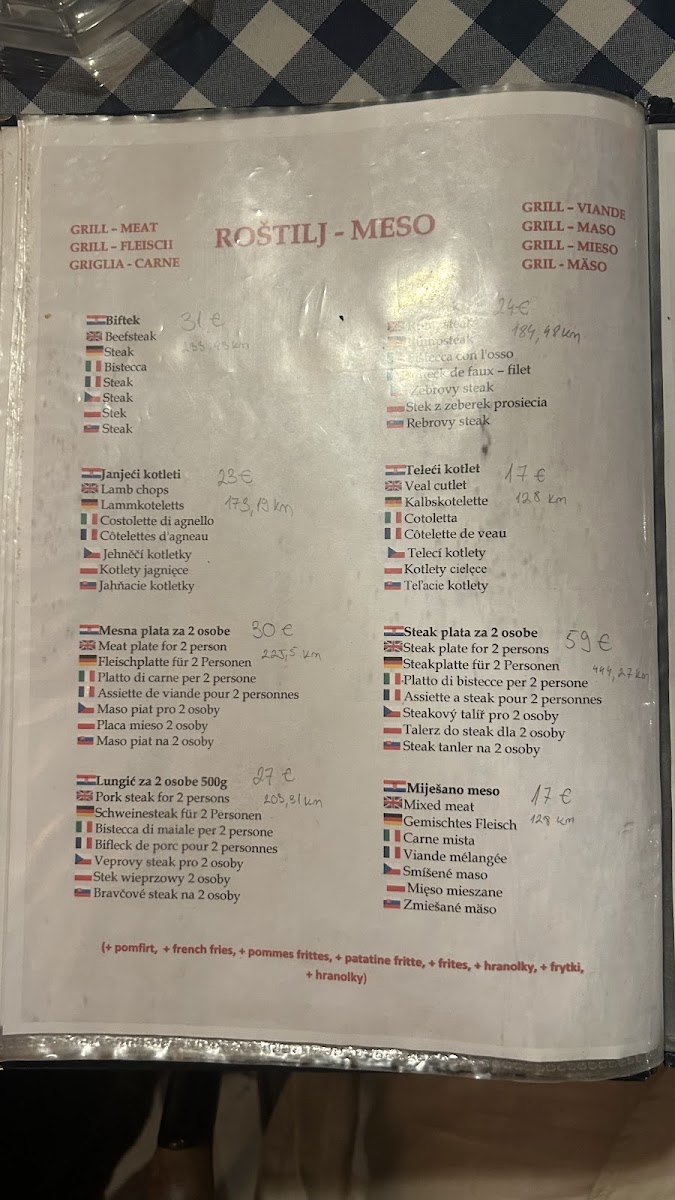 GRILL – MEAT
GRILL – FLEISCH
GRIGLIA - CARNE
ROŠTILJ - MESO
GRILL – VIANDE
GRILL – MASO
GRILL – MIESO
GRIL - MÄSO
Biftek 31 €
Beefsteak
Steak
Bistecca
Steak
Steak
Stek
Steak
24€
184,48 km
con l'osso
de faux – filet
steak
Stek z zeberek prosiecia
Rebrovy steak
Janjeći kotleti 23€
Lamb chops
Lammkoteletts 173,19 km
Costolette di agnello
Côtelettes d'agneau
Jehněčí kotletky
Kotlety jagnięce
Jahňacie kotletky
Teleći kotlet 17 €
Veal cutlet
Kalbskotelette 128 km
Cotoletta
Côtelette de veau
Telecí kotlety
Kotlety cielęce
Teľacie kotlety
Mesna plata za 2 osobe 30 €
Meat plate for 2 person
Fleischplatte für 2 Personen 225,5 km
Platto di carne per 2 persone
Assiette de viande pour 2 personnes
Maso piat pro 2 osoby
Placa mieso 2 osoby
Maso piat na 2 osoby
Steak plata za 2 osobe 59 €
Steak plate for 2 persons
Steakplatte für 2 Personen 444,27 km
Platto di bistecce per 2 persone
Assiette a steak pour 2 personnes
Steakový talíř pro 2 osoby
Talerz do steak dla 2 osoby
Steak tanler na 2 osoby
Lungić za 2 osobe 500g 27 €
Pork steak for 2 persons 203,31 km
Schweinesteak für 2 Personen
Bistecca di maiale per 2 persone
Bifleck de porc pour 2 personnes
Veprovy steak pro 2 osoby
Stek wieprzowy 2 osoby
Bravčové steak na 2 osoby
Miješano meso 17 €
Mixed meat
Gemischtes Fleisch 128 km
Carne mista
Viande mélangée
Smíšené maso
Mięso mieszane
Zmiešané mäso
(+ pomfirt, + french fries, + pommes frittes, + patatine fritte, + frites, + hranolky, + frytki,
+ hranolky)